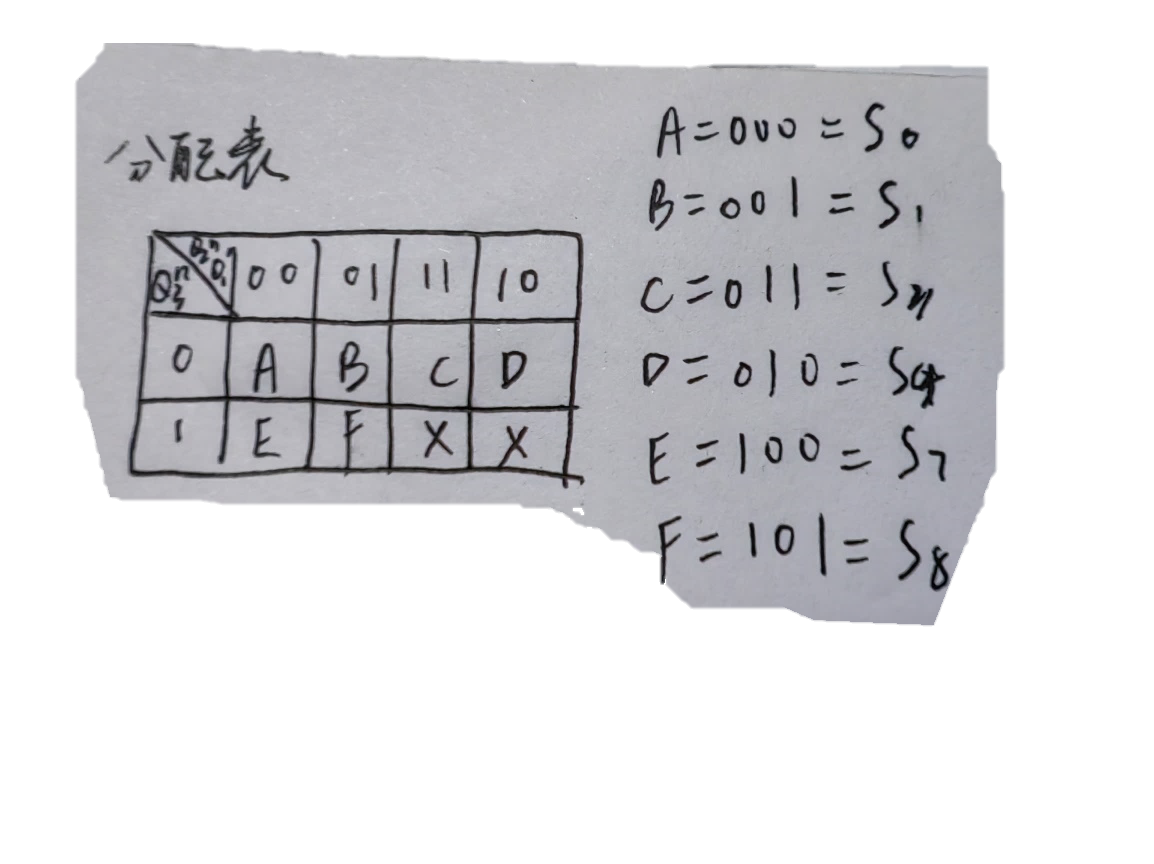 分配表
Q₃ⁿ Q₂ⁿ Q₁ⁿ 00 01 11 10
0 A B C D
1 E F X X
A=000=S₀
B=001=S₁
C=011=
D=010=
E=100=S₇
F=101=S₈